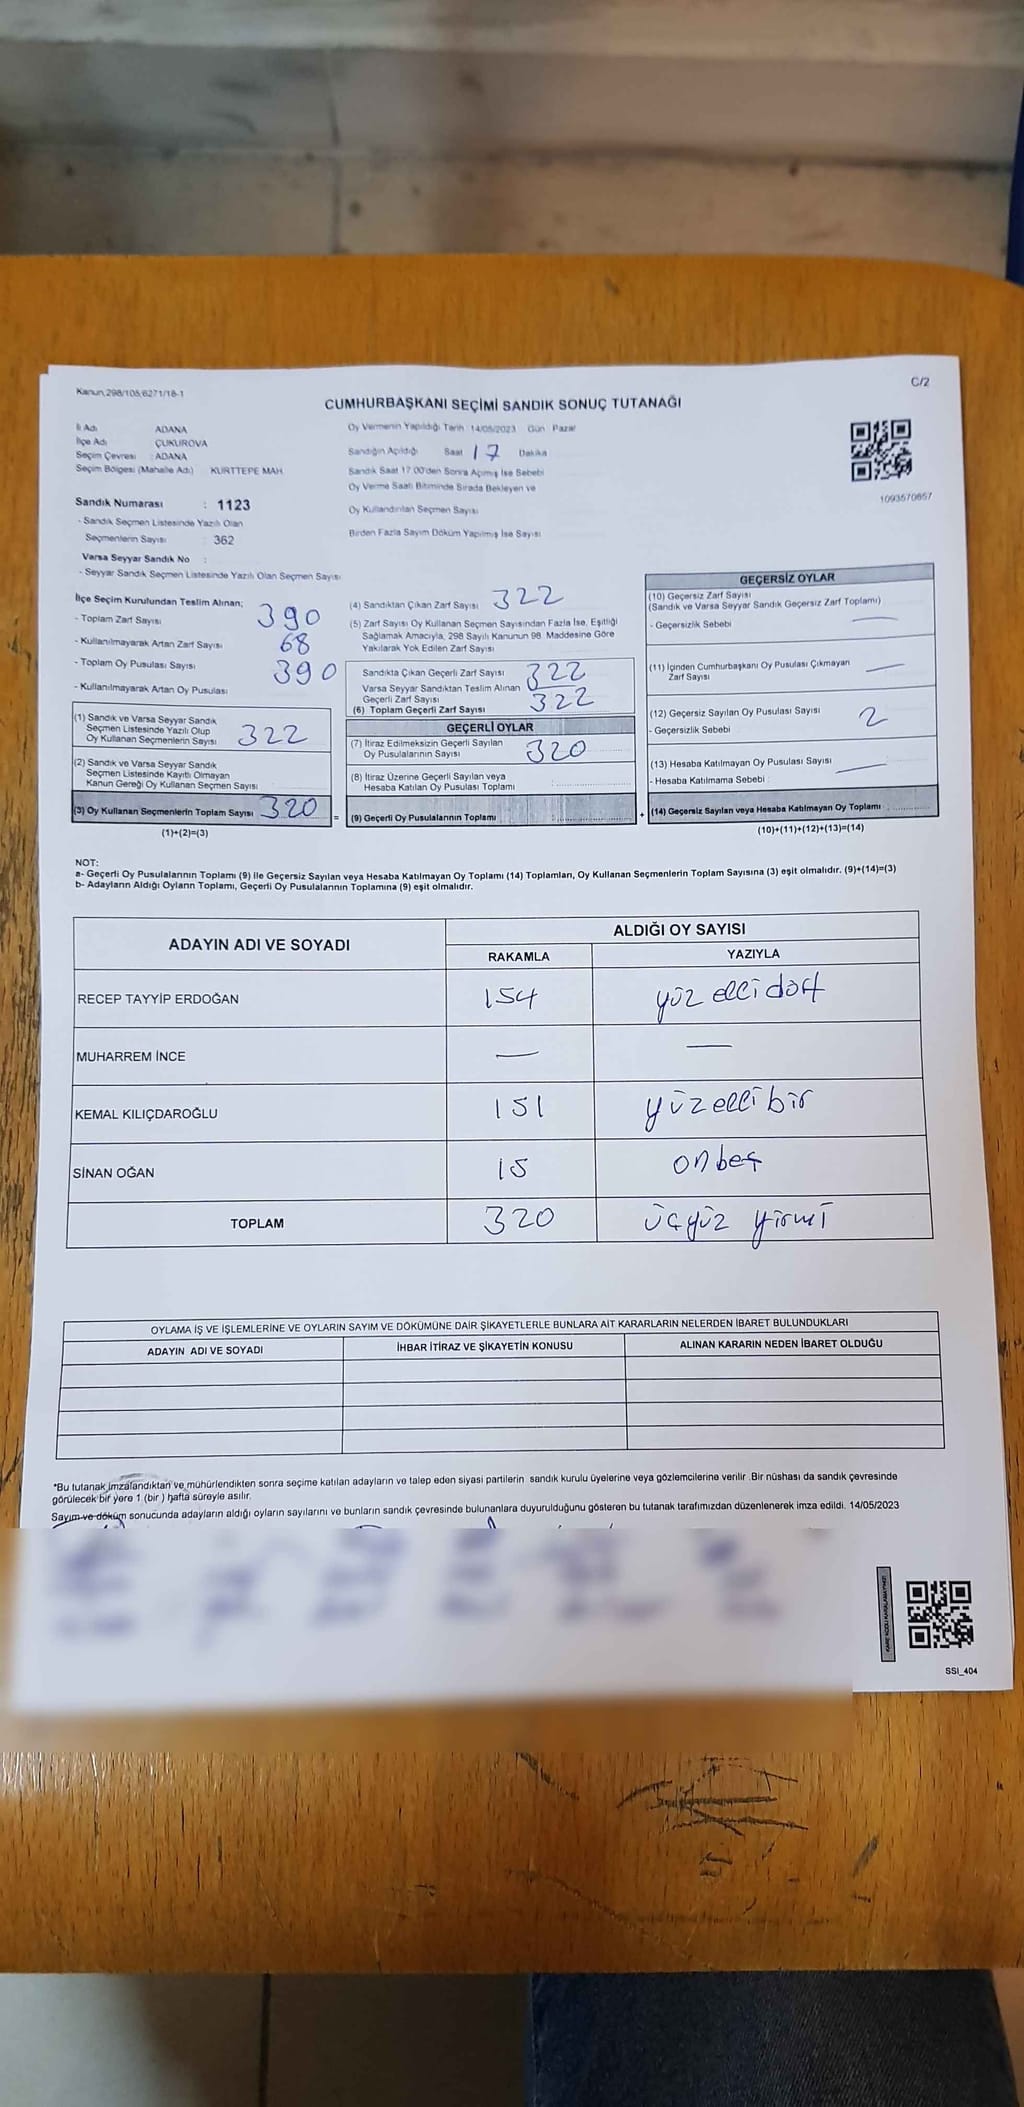 Kanun,298/105,6271/18-1
C/2
CUMHURBAŞKANI SEÇİMİ SANDIK SONUÇ TUTANAĞI
İl Adı ADANA
İlçe Adı ÇUKUROVA
Seçim Çevresi : ADANA
Seçim Bölgesi (Mahalle Adı) : KURTTEPE MAH
Sandık Numarası : 1123
- Sandık Seçmen Listesinde Yazılı Olan
Seçmenlerin Sayısı : 362
Varsa Seyyar Sandık No :
- Seyyar Sandık Seçmen Listesinde Yazılı Olan Seçmen Sayısı
Oy Vermenin Yapıldığı Tarih : 14/05/2023 Gün : Pazar
Sandığın Açıldığı Saat 17 Dakika
Sandık Saat 17:00'den Sonra Açımış İse Sebebi
Oy Verme Saati Bitiminde Sırada Bekleyen ve
Oy Kullandırılan Seçmen Sayısı
Birden Fazla Sayım Döküm Yapılmış İse Sayısı
1093570857
İlçe Seçim Kurulundan Teslim Alınan;
- Toplam Zarf Sayısı 390
- Kullanılmayarak Artan Zarf Sayısı 68
- Toplam Oy Pusulası Sayısı 390
- Kullanılmayarak Artan Oy Pusulası
(1) Sandık ve Varsa Seyyar Sandık
Seçmen Listesinde Yazılı Olup
Oy Kullanan Seçmenlerin Sayısı 322
(2) Sandık ve Varsa Seyyar Sandık
Seçmen Listesinde Kayıtlı Olmayan
Kanun Gereği Oy Kullanan Seçmen Sayısı
(3) Oy Kullanan Seçmenlerin Toplam Sayısı 320
(1)+(2)=(3)
=
(4) Sandıktan Çıkan Zarf Sayısı 322
(5) Zarf Sayısı Oy Kullanan Seçmen Sayısından Fazla İse, Eşitliği
Sağlamak Amacıyla, 298 Sayılı Kanunun 98. Maddesine Göre
Yakılarak Yok Edilen Zarf Sayısı
Sandıkta Çıkan Geçerli Zarf Sayısı 322
Varsa Seyyar Sandıktan Teslim Alınan
Geçerli Zarf Sayısı
(6) Toplam Geçerli Zarf Sayısı 322
GEÇERLİ OYLAR
(7) İtiraz Edilmeksizin Geçerli Sayılan
Oy Pusulalarının Sayısı 320
(8) İtiraz Üzerine Geçerli Sayılan veya
Hesaba Katılan Oy Pusulası Toplamı
(9) Geçerli Oy Pusulalarının Toplamı
+
GEÇERSİZ OYLAR
(10) Geçersiz Zarf Sayısı
(Sandık ve Varsa Seyyar Sandık Geçersiz Zarf Toplamı) —
- Geçersizlik Sebebi
(11) İçinden Cumhurbaşkanı Oy Pusulası Çıkmayan
Zarf Sayısı —
(12) Geçersiz Sayılan Oy Pusulası Sayısı 2
- Geçersizlik Sebebi
(13) Hesaba Katılmayan Oy Pusulası Sayısı —
- Hesaba Katılmama Sebebi
(14) Geçersiz Sayılan veya Hesaba Katılmayan Oy Toplamı
(10)+(11)+(12)+(13)=(14)
NOT:
a- Geçerli Oy Pusulalarının Toplamı (9) ile Geçersiz Sayılan veya Hesaba Katılmayan Oy Toplamı (14) Toplamları, Oy Kullanan Seçmenlerin Toplam Sayısına (3) eşit olmalıdır. (9)+(14)=(3)
b- Adayların Aldığı Oyların Toplamı, Geçerli Oy Pusulalarının Toplamına (9) eşit olmalıdır.
ADAYIN ADI VE SOYADI
ALDIĞI OY SAYISI
RAKAMLA YAZIYLA
RECEP TAYYİP ERDOĞAN 154 yüz elli dört
MUHARREM İNCE — —
KEMAL KILIÇDAROĞLU 151 yüzelli bir
SİNAN OĞAN 15 onbeş
TOPLAM 320 üçyüz yirmi
OYLAMA İŞ VE İŞLEMLERİNE VE OYLARIN SAYIM VE DÖKÜMÜNE DAİR ŞİKAYETLERLE BUNLARA AİT KARARLARIN NELERDEN İBARET BULUNDUKLARI
ADAYIN ADI VE SOYADI İHBAR İTİRAZ VE ŞİKAYETİN KONUSU ALINAN KARARIN NEDEN İBARET OLDUĞU
*Bu tutanak imzalandıktan ve mühürlendikten sonra seçime katılan adayların ve talep eden siyasi partilerin sandık kurulu üyelerine veya gözlemcilerine verilir .Bir nüshası da sandık çevresinde
görülecek bir yere 1 (bir ) hafta süreyle asılır.
Sayım ve döküm sonucunda adayların aldığı oyların sayılarını ve bunların sandık çevresinde bulunanlara duyurulduğunu gösteren bu tutanak tarafımızdan düzenlenerek imza edildi. 14/05/2023
KARE KODU KARALAMAYINIZ!
SSI_404